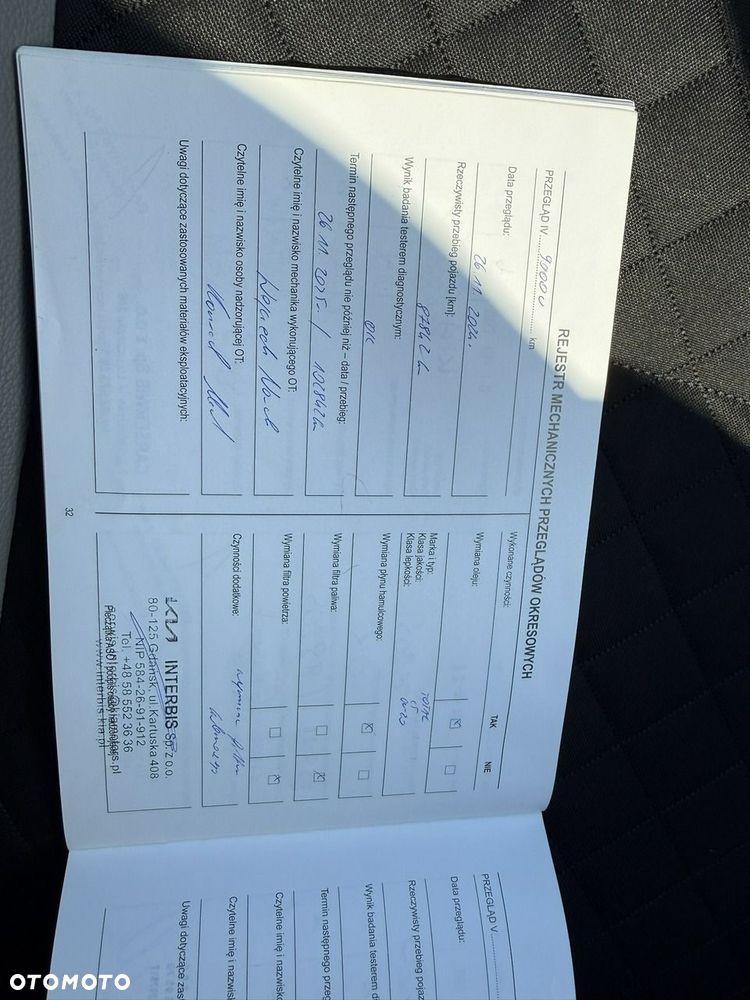 REJESTR MECHANICZNYCH PRZEGLĄDÓW OKRESOWYCH
PRZEGLĄD IV......90000.................. km
Data przeglądu:
26 11. 2024.
Rzeczywisty przebieg pojazdu [km]:
87842
Wynik badania testerem diagnostycznym:
OK
Termin następnego przeglądu nie później niż – data / przebieg:
26 11. 2025r. / 102842
Czytelne imię i nazwisko mechanika wykonującego OT:
Wojciech
Czytelne imię i nazwisko osoby nadzorującej OT:
Uwagi dotyczące zastosowanych materiałów eksploatacyjnych:
32
Wykonane czynności:
TAK NIE
Wymiana oleju:
Marka i typ: TOTAL
Klasa jakości: C5
Klasa lepkości: 0W20
Wymiana płynu hamulcowego:
Wymiana filtra paliwa:
Wymiana filtra powietrza:
Czynności dodatkowe: wymiana filtra
KIA INTERBIS Sp. z o.o.
80-125 Gdańsk, ul. Kartuska 408
NIP 584-26-91-912
Tel. +48 58 552 36 36
www.interbis.kia.pl
PRZEGLĄD V......
Data przeglądu:
Rzeczywisty przebieg pojaz
Wynik badania testerem di
Termin następnego przeg
Czytelne imię i nazwisk
Czytelne imię i nazwis
Uwagi dotyczące zas
OTOMOTO